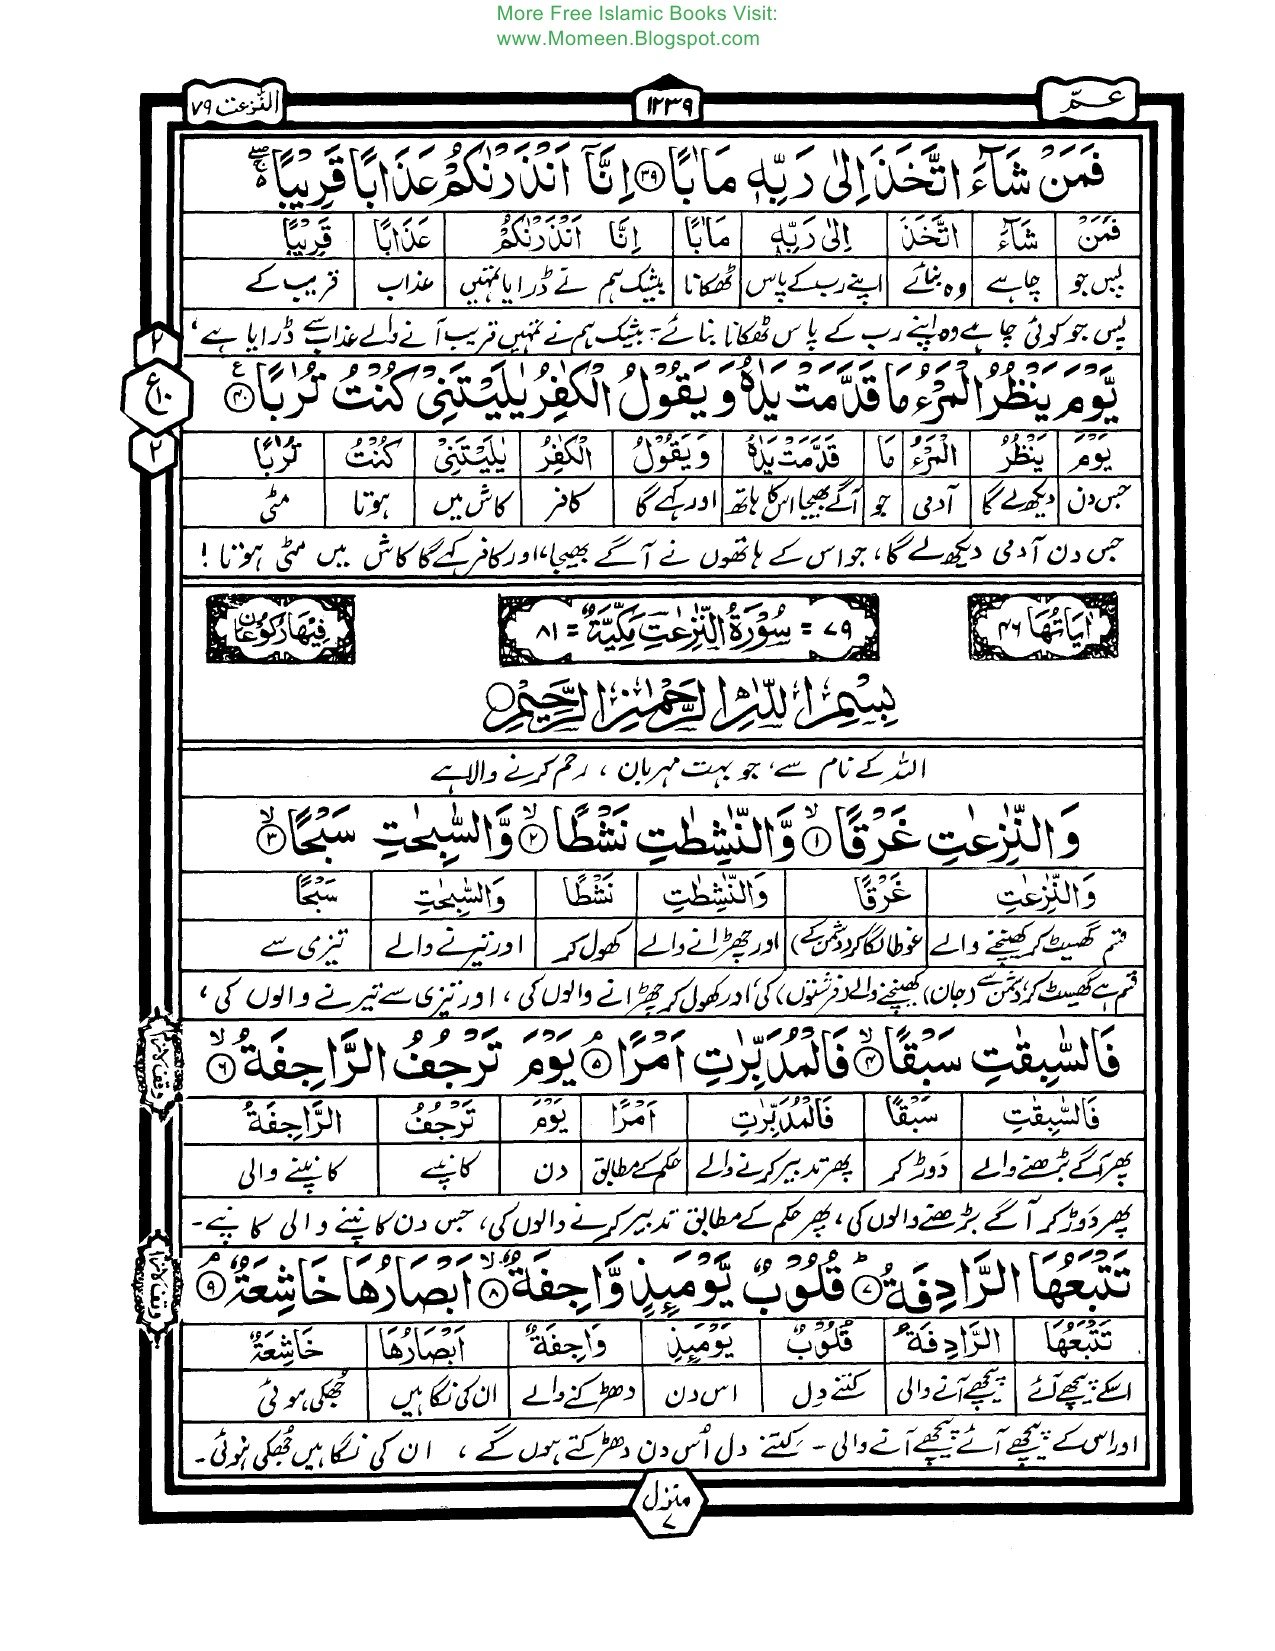 More Free Islamic Books Visit:
www.Momeen.Blogspot.com
عمّ ١٢٣٩ النّٰزعٰت ٧٩
فَمَنْ شَآءَ اتَّخَذَ اِلٰى رَبِّهٖ مَاٰبًا ﴿٣٩﴾ اِنَّاۤ اَنْذَرْنٰكُمْ عَذَابًا قَرِيْبًا
فَمَنْ شَآءَ اتَّخَذَ اِلٰى رَبِّهٖ مَاٰبًا اِنَّا اَنْذَرْنٰكُمْ عَذَابًا قَرِيْبًا
پس جو چاہے وہ بنائے اپنے رب کے پاس ٹھکانا بیشک ہم نے ڈرایا تمہیں عذاب قریب کے
پس جو کوئی چاہے وہ اپنے رب کے پاس ٹھکانا بنائے۔ بیشک ہم نے تمہیں قریب آنے والے عذاب سے ڈرایا ہے،
٢
ع ١٠
٢
يَّوْمَ يَنْظُرُ الْمَرْءُ مَا قَدَّمَتْ يَدٰهُ وَيَقُوْلُ الْكٰفِرُ يٰلَيْتَنِىْ كُنْتُ تُرٰبًا ﴿٤٠﴾ ع
يَوْمَ يَنْظُرُ الْمَرْءُ مَا قَدَّمَتْ يَدٰهُ وَيَقُوْلُ الْكٰفِرُ يٰلَيْتَنِىْ كُنْتُ تُرٰبًا
جس دن دیکھ لے گا آدمی جو آگے بھیجا اس کا ہاتھ اور کہے گا کافر کاش میں ہوتا مٹی
جس دن آدمی دیکھ لے گا، جو اس کے ہاتھوں نے آگے بھیجا، اور کافر کہے گا کاش میں مٹی ہوتا!
اٰيَاتُهَا ٤٦ ٧٩ = سُوْرَةُ النّٰزِعٰتِ مَكِّيَّةٌ = ٨١ فِيْهَا رُكُوْعَانِ
بِسْمِ اللّٰهِ الرَّحْمٰنِ الرَّحِيْمِ
اللہ کے نام سے، جو بہت مہربان، رحم کرنے والا ہے
وَالنّٰزِعٰتِ غَرْقًا ﴿١﴾ وَّالنّٰشِطٰتِ نَشْطًا ﴿٢﴾ وَّالسّٰبِحٰتِ سَبْحًا ﴿٣﴾
وَالنّٰزِعٰتِ غَرْقًا وَالنّٰشِطٰتِ نَشْطًا وَالسّٰبِحٰتِ سَبْحًا
قسم گھسیٹ کر کھینچنے والے غوطا لگا کر (دشمن کے) اور چھڑانے والے کھول کر اور تیرنے والے تیزی سے
قسم ہے گھسیٹ کر دشمن سے (جان) کھینچنے والے (فرشتوں) کی، اور کھول کر چھڑانے والوں کی، اور تیزی سے تیرنے والوں کی،
فَالسّٰبِقٰتِ سَبْقًا ﴿٤﴾ فَالْمُدَبِّرٰتِ اَمْرًا ﴿٥﴾ يَوْمَ تَرْجُفُ الرَّاجِفَةُ ﴿٦﴾
فَالسّٰبِقٰتِ سَبْقًا فَالْمُدَبِّرٰتِ اَمْرًا يَوْمَ تَرْجُفُ الرَّاجِفَةُ
پھر آگے بڑھنے والے دَوڑ کر پھر تدبیر کرنے والے حکم کے مطابق دن کانپے کانپنے والی
پھر دَوڑ کر آگے بڑھنے والوں کی، پھر حکم کے مطابق تدبیر کرنے والوں کی، جس دن کانپنے والی کانپے۔
تَتْبَعُهَا الرَّادِفَةُ ﴿٧﴾ قُلُوْبٌ يَّوْمَىِٕذٍ وَّاجِفَةٌ ﴿٨﴾ اَبْصَارُهَا خَاشِعَةٌ ﴿٩﴾
تَتْبَعُهَا الرَّادِفَةُ قُلُوْبٌ يَوْمَىِٕذٍ وَاجِفَةٌ اَبْصَارُهَا خَاشِعَةٌ
اسکے پیچھے آئے پیچھے آنے والی کتنے دل اس دن دھڑکنے والے ان کی نگاہیں جُھکی ہوئی
اور اس کے پیچھے آئے پیچھے آنے والی۔ کتنے دل اُس دن دھڑکتے ہوں گے، ان کی نگاہیں جُھکی ہوئی۔
منزل ٧